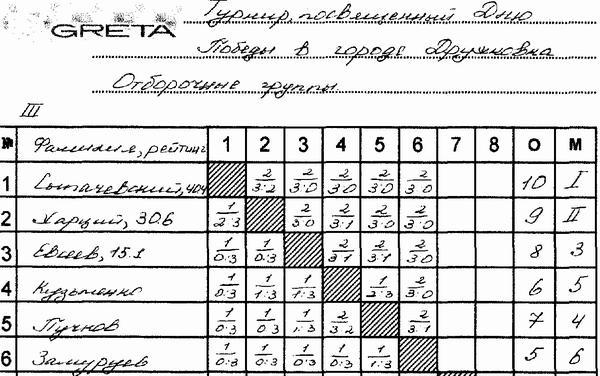 GRETA
Турнир, посвещенный Дню
Победы в городе Дружковка
Отборочные группы
III
№ Фамилия, рейтинг 1 2 3 4 5 6 7 8 О М
1 2/3:2 2/3:0 2/3:0 2/3:0 2/3:0 10 I
2 Харций, 30.6 1/2:3 2/3:0 2/3:1 2/3:0 2/3:0 9 II
3 Евсеев, 15.1 1/0:3 1/0:3 2/3:1 2/3:1 2/3:0 8 3
4 Кузьменко 1/0:3 1/1:3 1/1:3 1/2:3 2/3:0 6 5
5 Пучнов 1/0:3 1/0:3 1/1:3 2/3:2 2/3:1 7 4
6 Замуруев 1/0:3 1/0:3 1/0:3 1/0:3 1/1:3 5 6